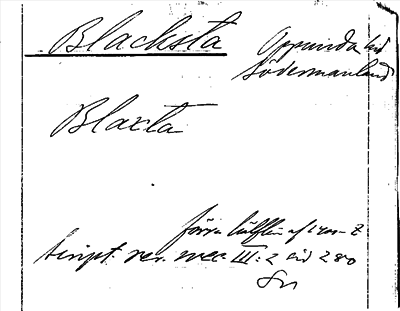 Blacksta
Oppunda hd
Södermanland
Blaxta
förra hälften af 1400-t
Script. rer. svec III:2 sid 280